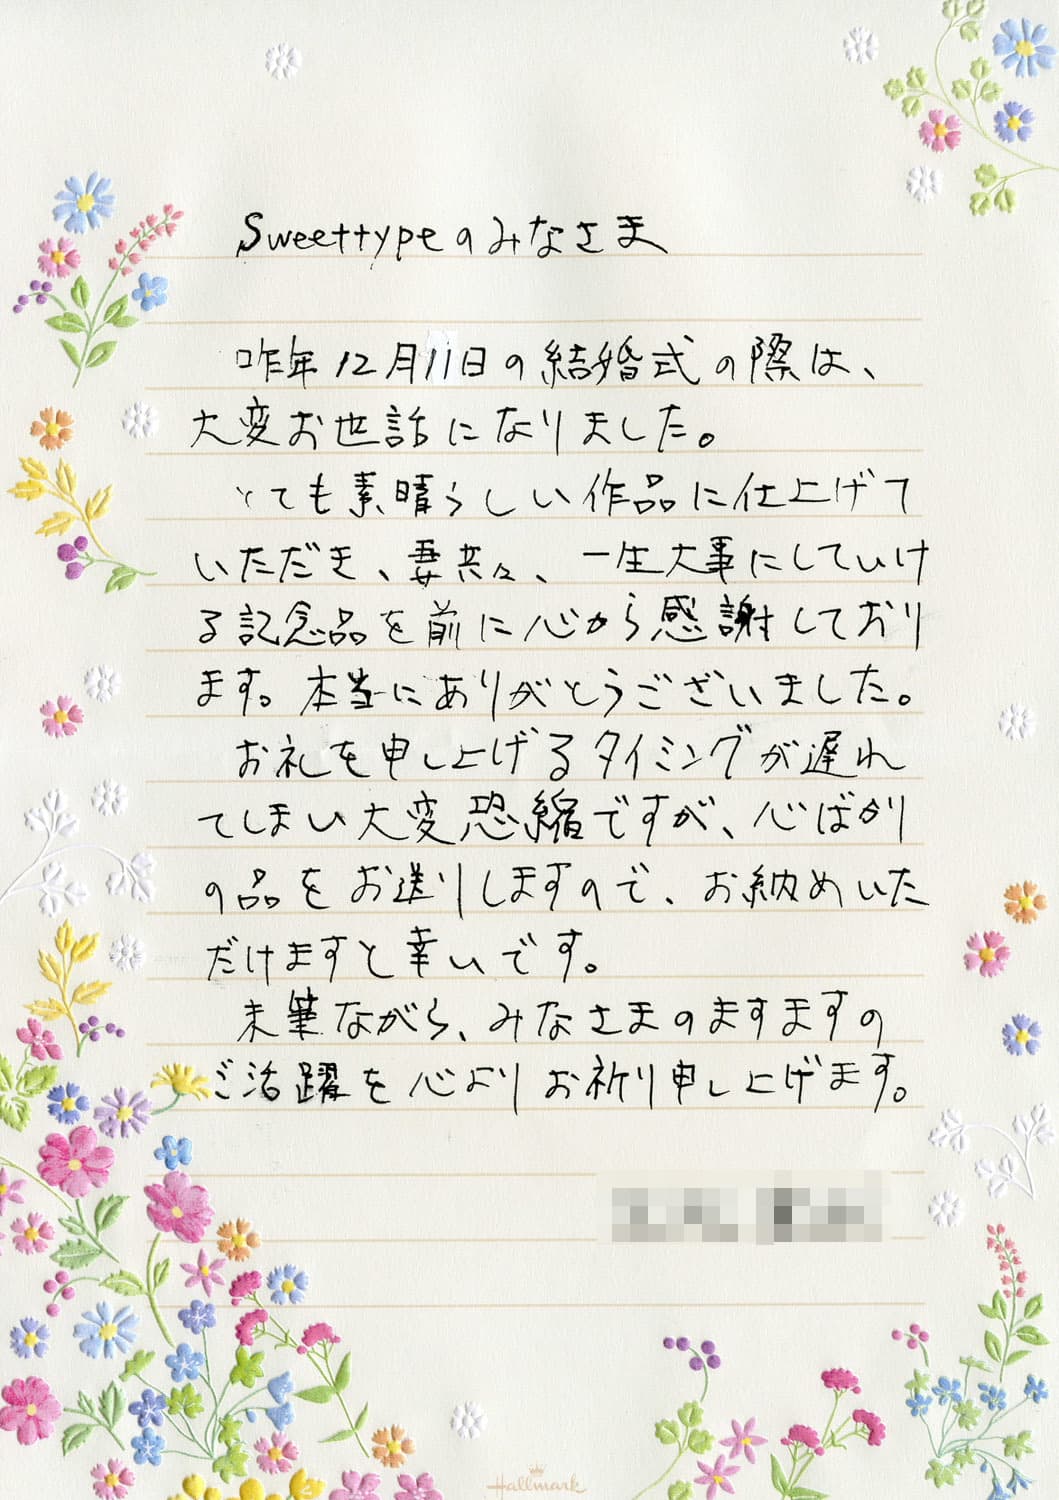 Sweettypeのみなさま
昨年12月11日の結婚式の際は、
大変お世話になりました。
とても素晴らしい作品に仕上げて
いただき、妻共々、一生大事にしていけ
る記念品を前に心から感謝しており
ます。本当にありがとうございました。
お礼を申し上げるタイミングが遅れ
てしまい大変恐縮ですが、心ばかり
の品をお送りしますので、お納めいた
だけますと幸いです。
末筆ながら、みなさまのますますの
ご活躍を心よりお祈り申し上げます。
Hallmark